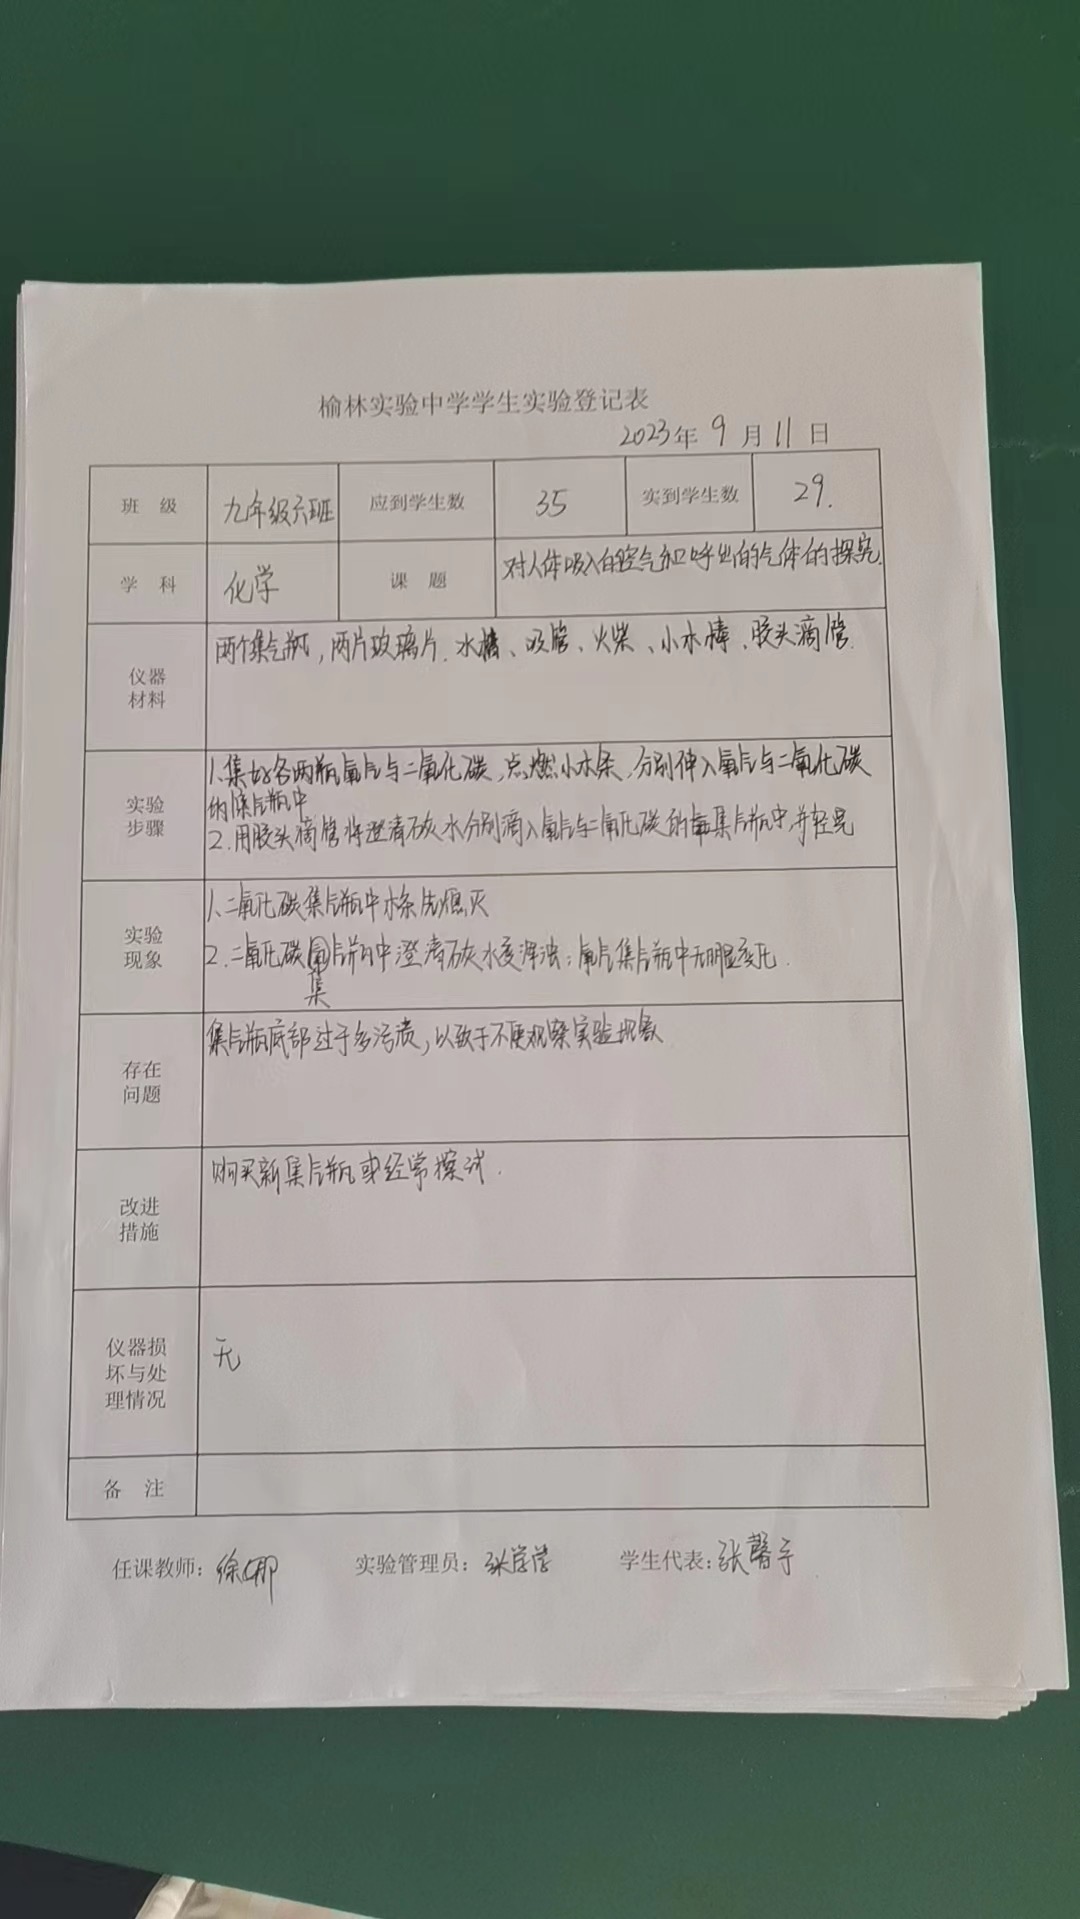 榆林实验中学学生实验登记表
2023年 9 月 11 日
班 级 九年级六班 应到学生数 35 实到学生数 29.
学 科 化学 课 题 对人体吸入的空气和呼出的气体的探究.
仪器材料 两个集气瓶,两片玻璃片.水槽、吸管、火柴、小木棒、胶头滴管.
实验步骤 1.集好各两瓶氧气与二氧化碳,点燃小木条,分别伸入氧气与二氧化碳
的集气瓶中
2.用胶头滴管将澄清石灰水分别滴入氧气与二氧化碳的集气瓶中,并轻晃
实验现象 1.二氧化碳集气瓶中木条先熄灭
2.二氧化碳集气瓶中澄清石灰水变浑浊;氧气集气瓶中无明显变化.
存在问题 集气瓶底部过于多污渍,以致于不便观察实验现象
改进措施 购买新集气瓶或经常擦拭.
仪器损坏与处理情况 无
备 注
任课教师:徐娜 实验管理员: 学生代表:张馨予